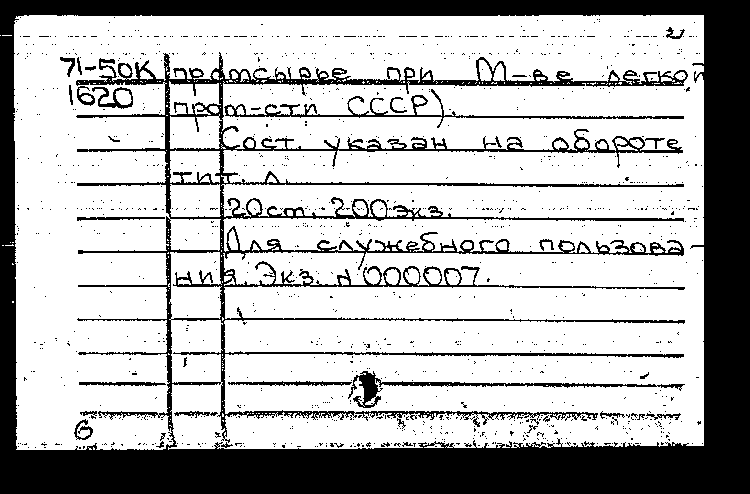 2
71-50К промсырье при М-ве легкой
1620 пром-сти СССР).
Сост. указан на обороте
тит. л.
20см. 200экз.
Для служебного пользова-
ния. Экз. N 000007.
6